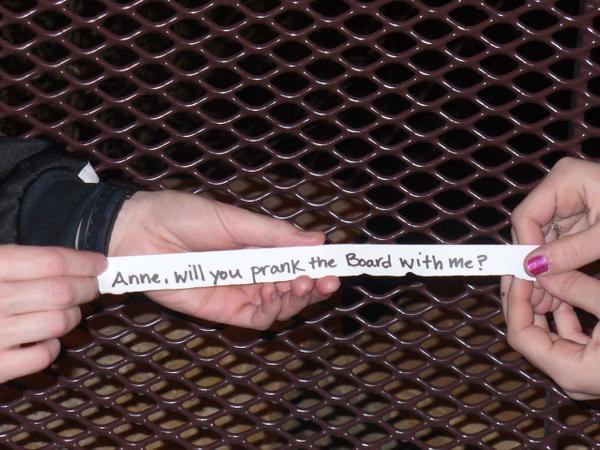 Anne, will you prank the Board with me?